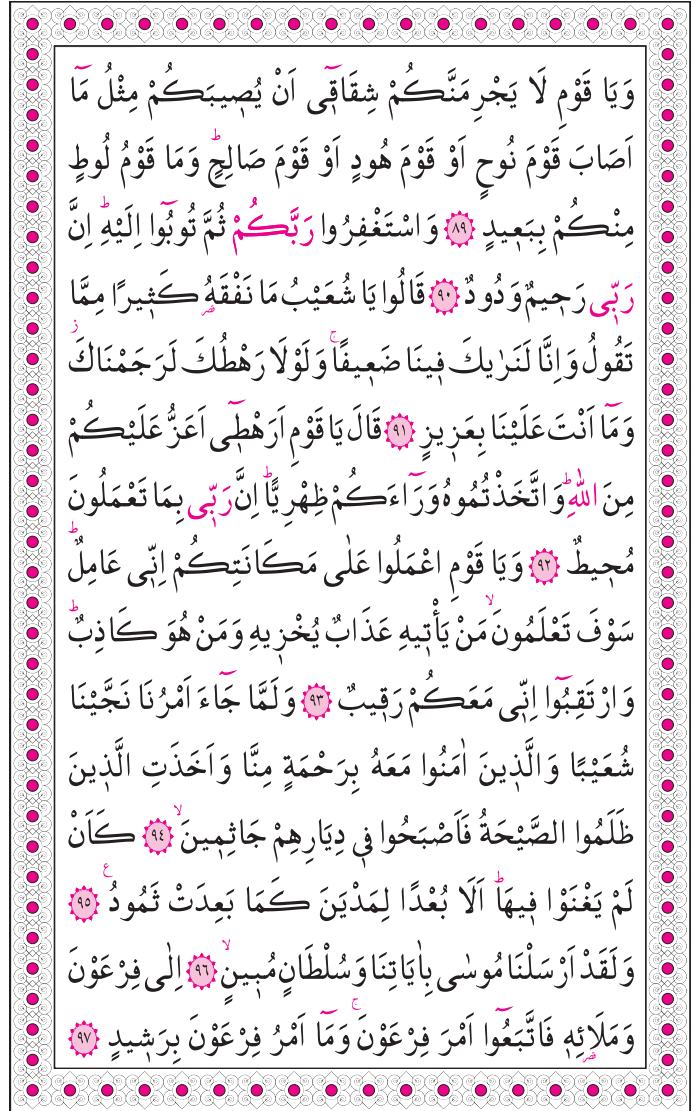 وَيَا قَوْمِ لَا يَجْرِمَنَّكُمْ شِقَاقٖٓي اَنْ يُصٖيبَكُمْ مِثْلُ مَٓا
اَصَابَ قَوْمَ نُوحٍ اَوْ قَوْمَ هُودٍ اَوْ قَوْمَ صَالِحٍؕ وَمَا قَوْمُ لُوطٍ
مِنْكُمْ بِبَعٖيدٍ ﴿٨٩﴾ وَاسْتَغْفِرُوا رَبَّكُمْ ثُمَّ تُوبُٓوا اِلَيْهِؕ اِنَّ
رَبّٖى رَحٖيمٌ وَدُودٌ ﴿٩٠﴾ قَالُوا يَا شُعَيْبُ مَا نَفْقَهُ كَثٖيرًا مِمَّا
تَقُولُ وَاِنَّا لَنَرٰيكَ فٖينَا ضَعٖيفًاۚ وَلَوْلَا رَهْطُكَ لَرَجَمْنَاكَؗ
وَمَٓا اَنْتَ عَلَيْنَا بِعَزٖيزٍ ﴿٩١﴾ قَالَ يَا قَوْمِ اَرَهْطٖٓى اَعَزُّ عَلَيْكُمْ
مِنَ اللّٰهِؕ وَاتَّخَذْتُمُوهُ وَرَٓاءَكُمْ ظِهْرِيًّاؕ اِنَّ رَبّٖى بِمَا تَعْمَلُونَ
مُحٖيطٌ ﴿٩٢﴾ وَيَا قَوْمِ اعْمَلُوا عَلٰى مَكَانَتِكُمْ اِنّٖى عَامِلٌؕ
سَوْفَ تَعْلَمُونَۙ مَنْ يَأْتٖيهِ عَذَابٌ يُخْزٖيهِ وَمَنْ هُوَ كَاذِبٌؕ
وَارْتَقِبُٓوا اِنّٖى مَعَكُمْ رَقٖيبٌ ﴿٩٣﴾ وَلَمَّا جَٓاءَ اَمْرُنَا نَجَّيْنَا
شُعَيْبًا وَالَّذٖينَ اٰمَنُوا مَعَهُ بِرَحْمَةٍ مِنَّا وَاَخَذَتِ الَّذٖينَ
ظَلَمُوا الصَّيْحَةُ فَاَصْبَحُوا فٖى دِيَارِهِمْ جَاثِمٖينَۙ ﴿٩٤﴾ كَاَنْ
لَمْ يَغْنَوْا فٖيهَاؕ اَلَا بُعْدًا لِمَدْيَنَ كَمَا بَعِدَتْ ثَمُودُ ࣖ ﴿٩٥﴾
وَلَقَدْ اَرْسَلْنَا مُوسٰى بِاٰيَاتِنَا وَسُلْطَانٍ مُبٖينٍۙ ﴿٩٦﴾ اِلٰى فِرْعَوْنَ
وَمَلَائِهٖ فَاتَّبَعُٓوا اَمْرَ فِرْعَوْنَۚ وَمَٓا اَمْرُ فِرْعَوْنَ بِرَشٖيدٍ ﴿٩٧﴾